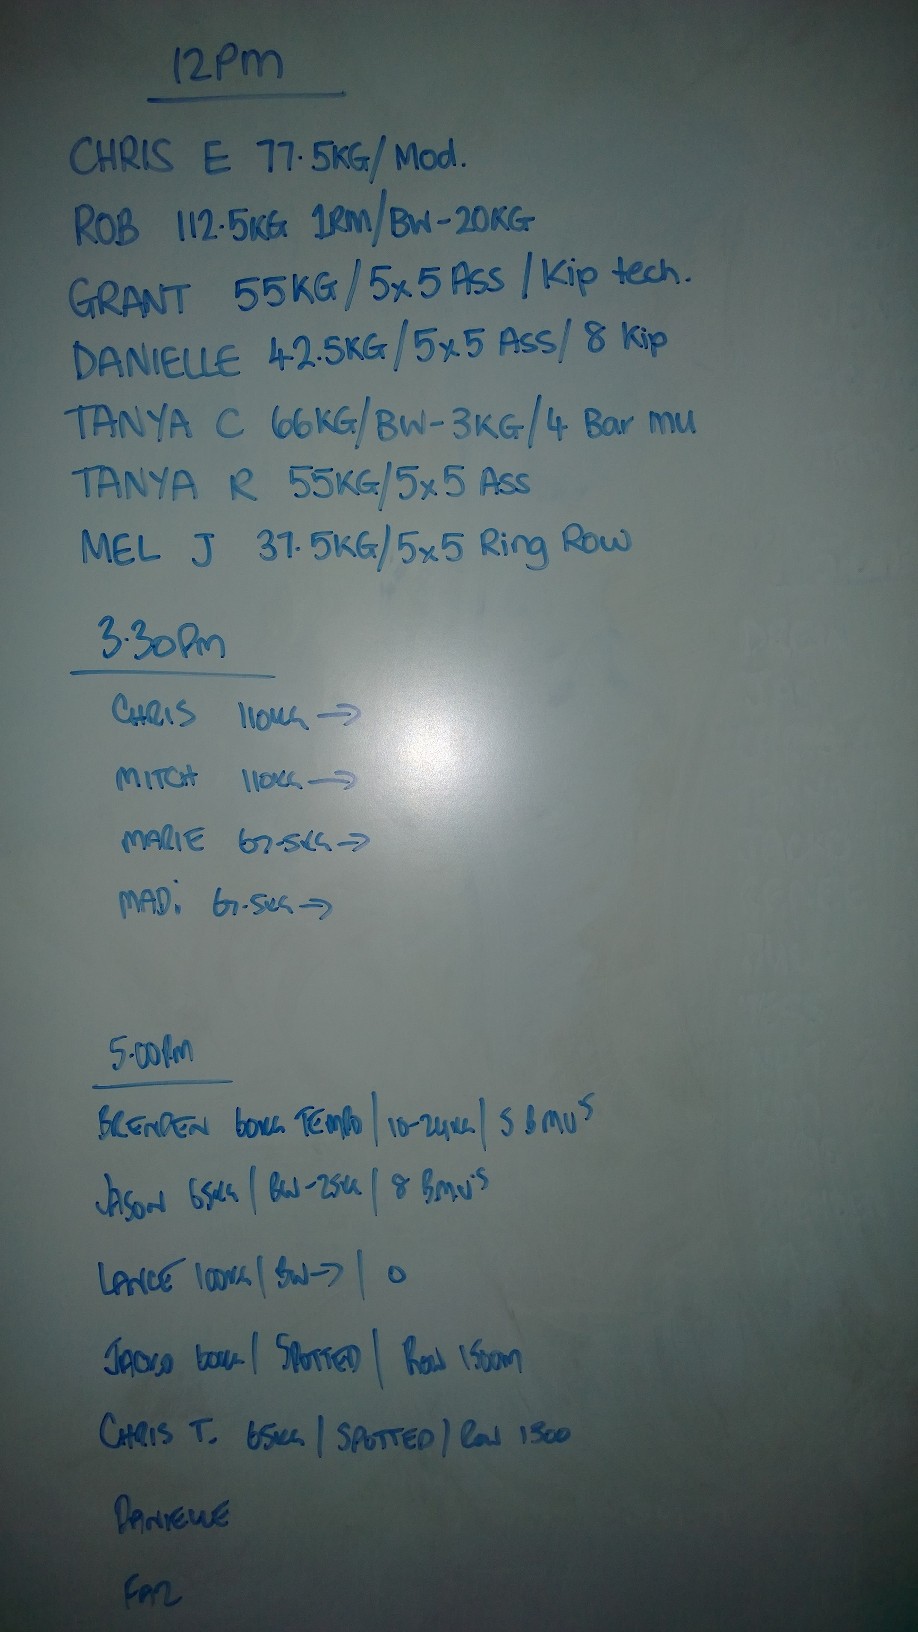 12Pm
CHRIS E 77.5KG/Mod.
ROB 112.5KG 1RM/BW-20KG
GRANT 55KG/5x5 Ass/Kip tech.
DANIELLE 42.5KG/5x5 Ass/8 Kip
TANYA C 66KG/BW-3KG/4 Bar mu
TANYA R 55KG/5x5 Ass
MEL J 37.5KG/5x5 Ring Row
3.30Pm
CHRIS 110KG →
MITCH 110KG →
MARIE 67.5KG →
MADi 67.5KG →
5.00Pm
BRENDEN 60KG TEMPO | 10-24KG | 5 BMU'S
JASON 65KG | BW-25KG | 8 BMU'S
LANCE 100KG | BW→ | 0
60KG | SPOTTED | ROW 1500m
CHRIS T. 65KG | SPOTTED | ROW 1500
DANIELLE